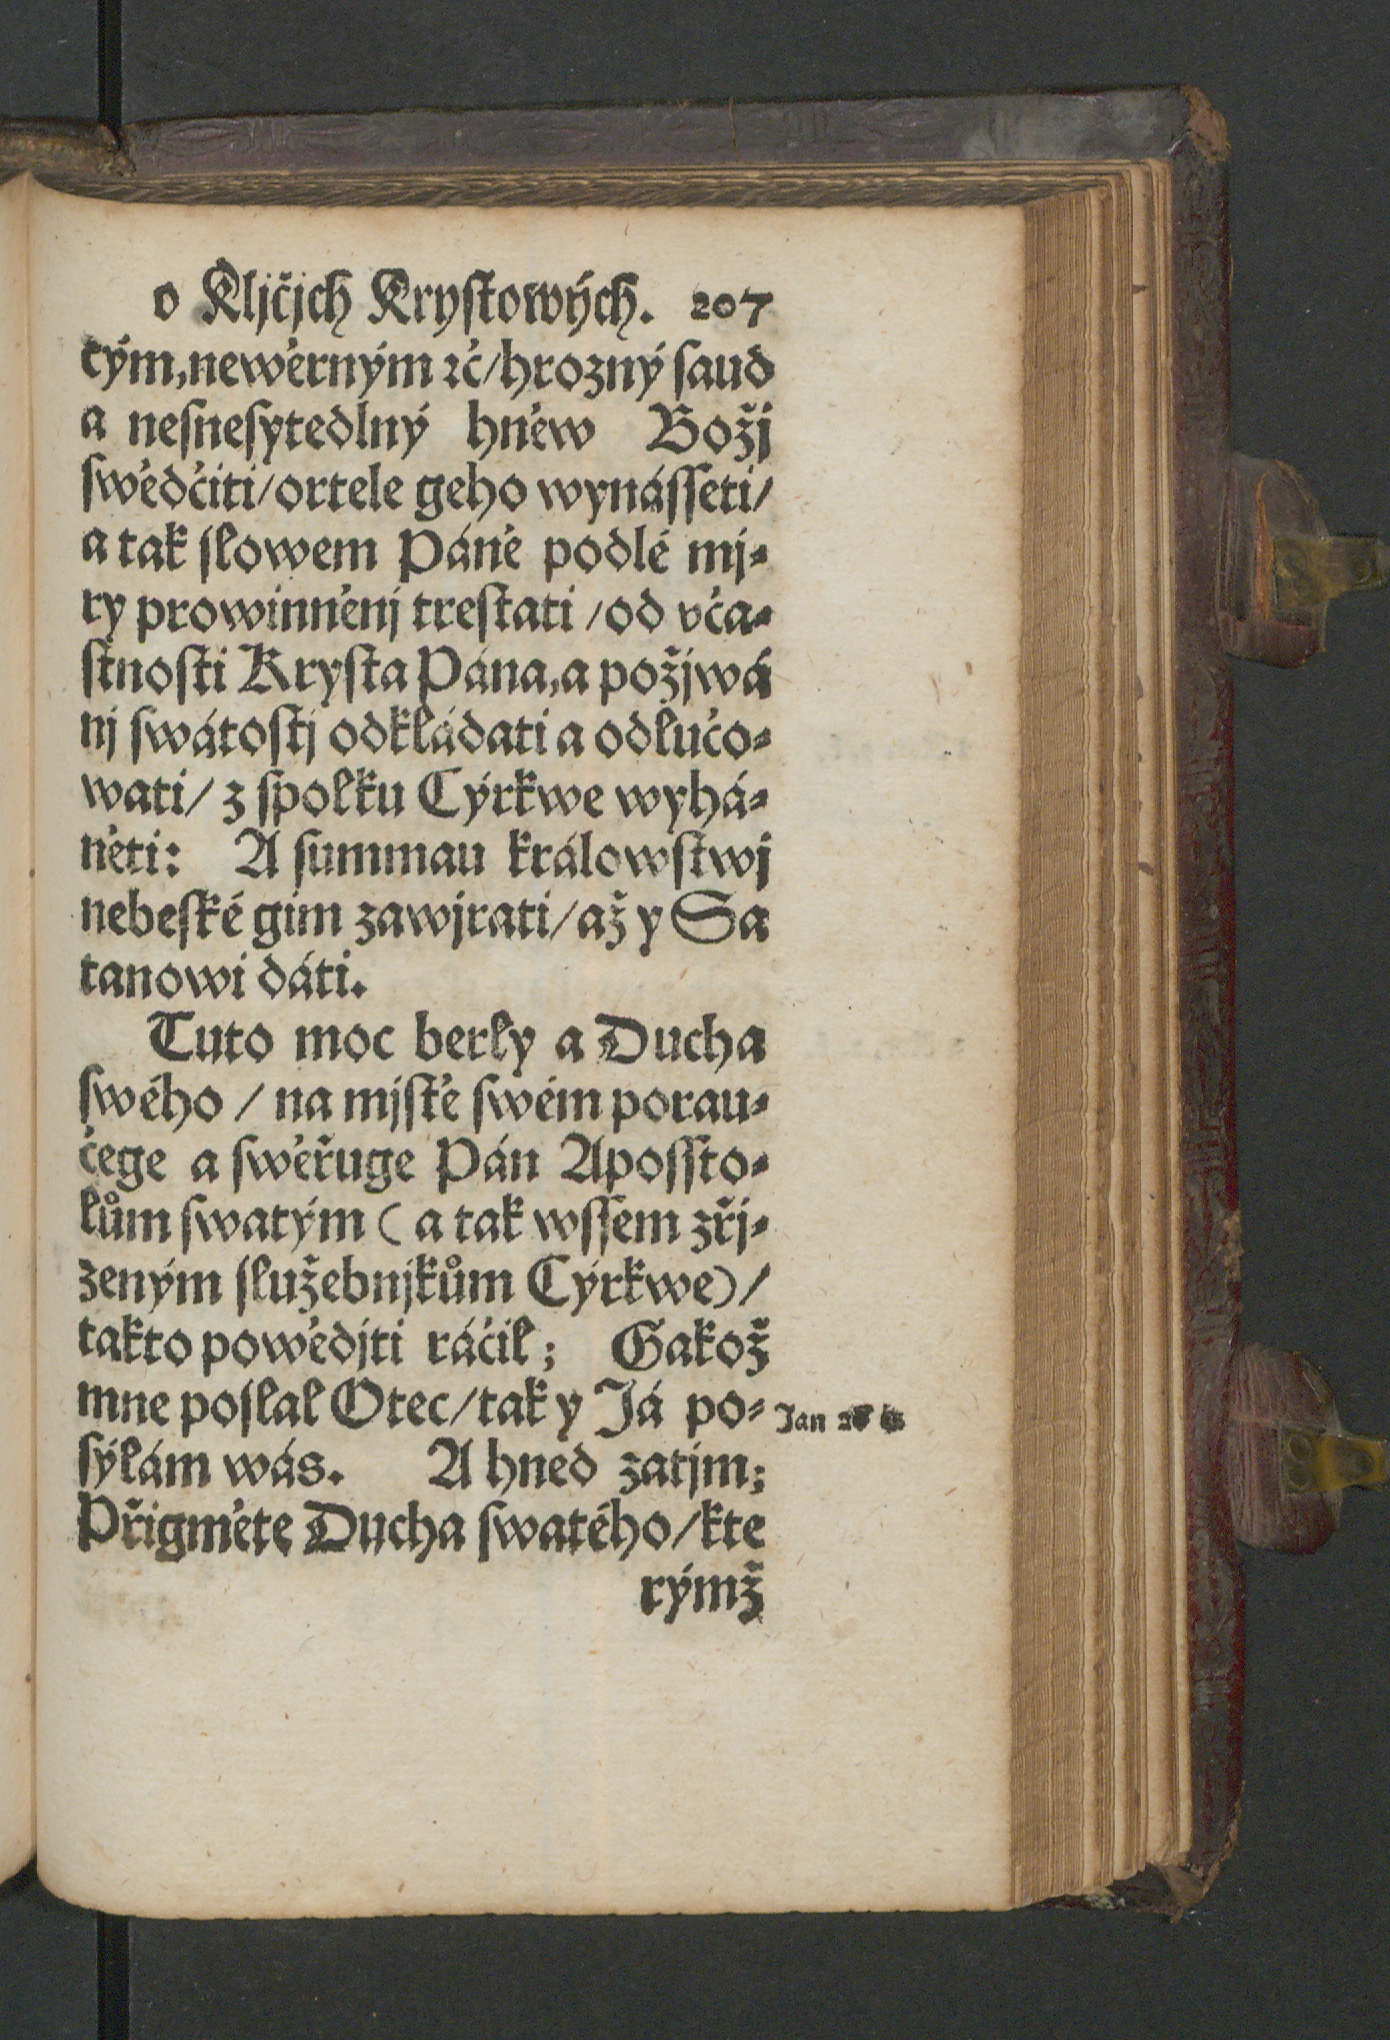 o Kljčjch Krystowých. 207
tým, newěrným ꝛč/hrozný ſaud
a neſneſytedlný hněw Božj
ſwědčiti/ortele geho wynáſſeti/
a tak ſlowem Páně podlé mj⸗
ry prowinněnj treſtati /od vča⸗
ſtnoſti Kryſta Pána, a požjwá
nj ſwátoſtj odkládati a odlučo⸗
wati/ z ſpolku Cýrkwe wyhá⸗
něti: A ſummau králowſtwj
nebeſké gim zawjrati/až y Sa
tanowi dáti.
Tuto moc berly a Ducha
ſwého / na mjſtě ſwém porau⸗
čege a ſwěřuge Pán Apoſſto⸗
lům ſwatým ( a tak wſſem zřj⸗
zeným ſlužebnjkům Cýrkwe)/
takto powědjti ráčil; Gakož
mne poſlal Otec/tak y Já po⸗
Jan
ſýlám wás. A hned zatjm;
Přigměte Ducha ſwatého/kte
rýmž